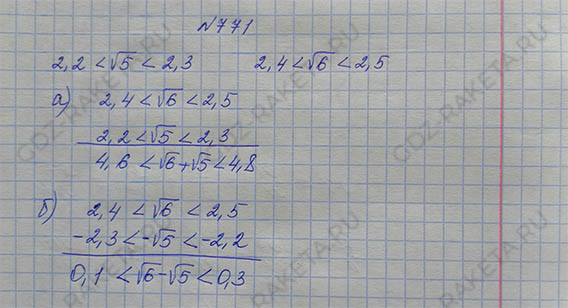 №771
2,2 < √5 < 2,3 2,4 < √6 < 2,5
а) 2,4 < √6 < 2,5
2,2 < √5 < 2,3
4,6 < √6 + √5 < 4,8
б) 2,4 < √6 < 2,5
-2,3 < -√5 < -2,2
0,1 < √6 - √5 < 0,3
GDZ-RAKETA.RU
GDZ-RAKETA.RU
GDZ-RAKETA.RU
GDZ-RAKETA.RU